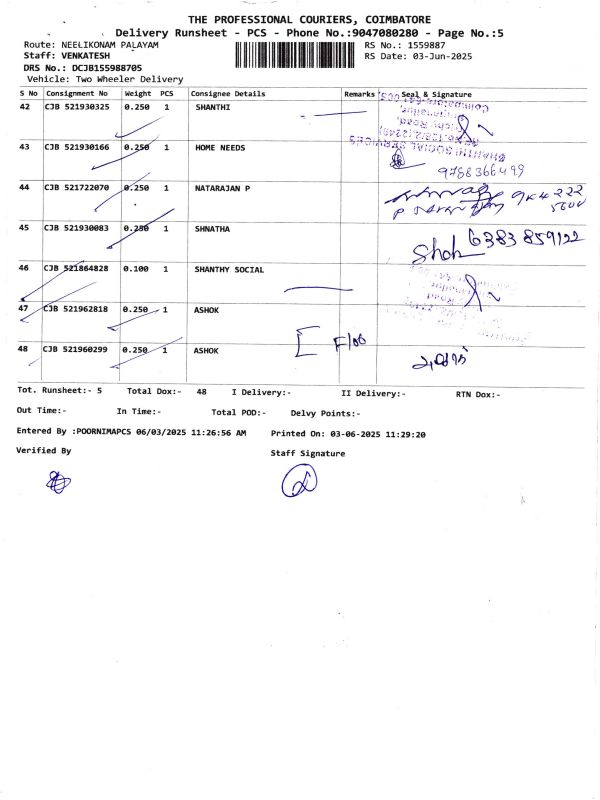 THE PROFESSIONAL COURIERS, COIMBATORE
Delivery Runsheet - PCS - Phone No.:9047080280 - Page No.:5
Route: NEELIKONAM PALAYAM RS No.: 1559887
Staff: VENKATESH RS Date: 03-Jun-2025
DRS No.: DCJB155988705
Vehicle: Two Wheeler Delivery
S No Consignment No Weight PCS Consignee Details Remarks Seal & Signature
42 CJB 521930325 0.250 1 SHANTHI
43 CJB 521930166 0.250 1 HOME NEEDS
SHANTHI SOCIAL SERVICES
9788366499
44 CJB 521722070 0.250 1 NATARAJAN P
45 CJB 521930083 0.250 1 SHNATHA
Shok 6383859122
46 CJB 521864828 0.100 1 SHANTHY SOCIAL
47 CJB 521962818 0.250 1 ASHOK
48 CJB 521960299 0.250 1 ASHOK
Tot. Runsheet:- 5 Total Dox:- 48 I Delivery:- II Delivery:- RTN Dox:-
Out Time:- In Time:- Total POD:- Delvy Points:-
Entered By :POORNIMAPCS 06/03/2025 11:26:56 AM Printed On: 03-06-2025 11:29:20
Verified By Staff Signature